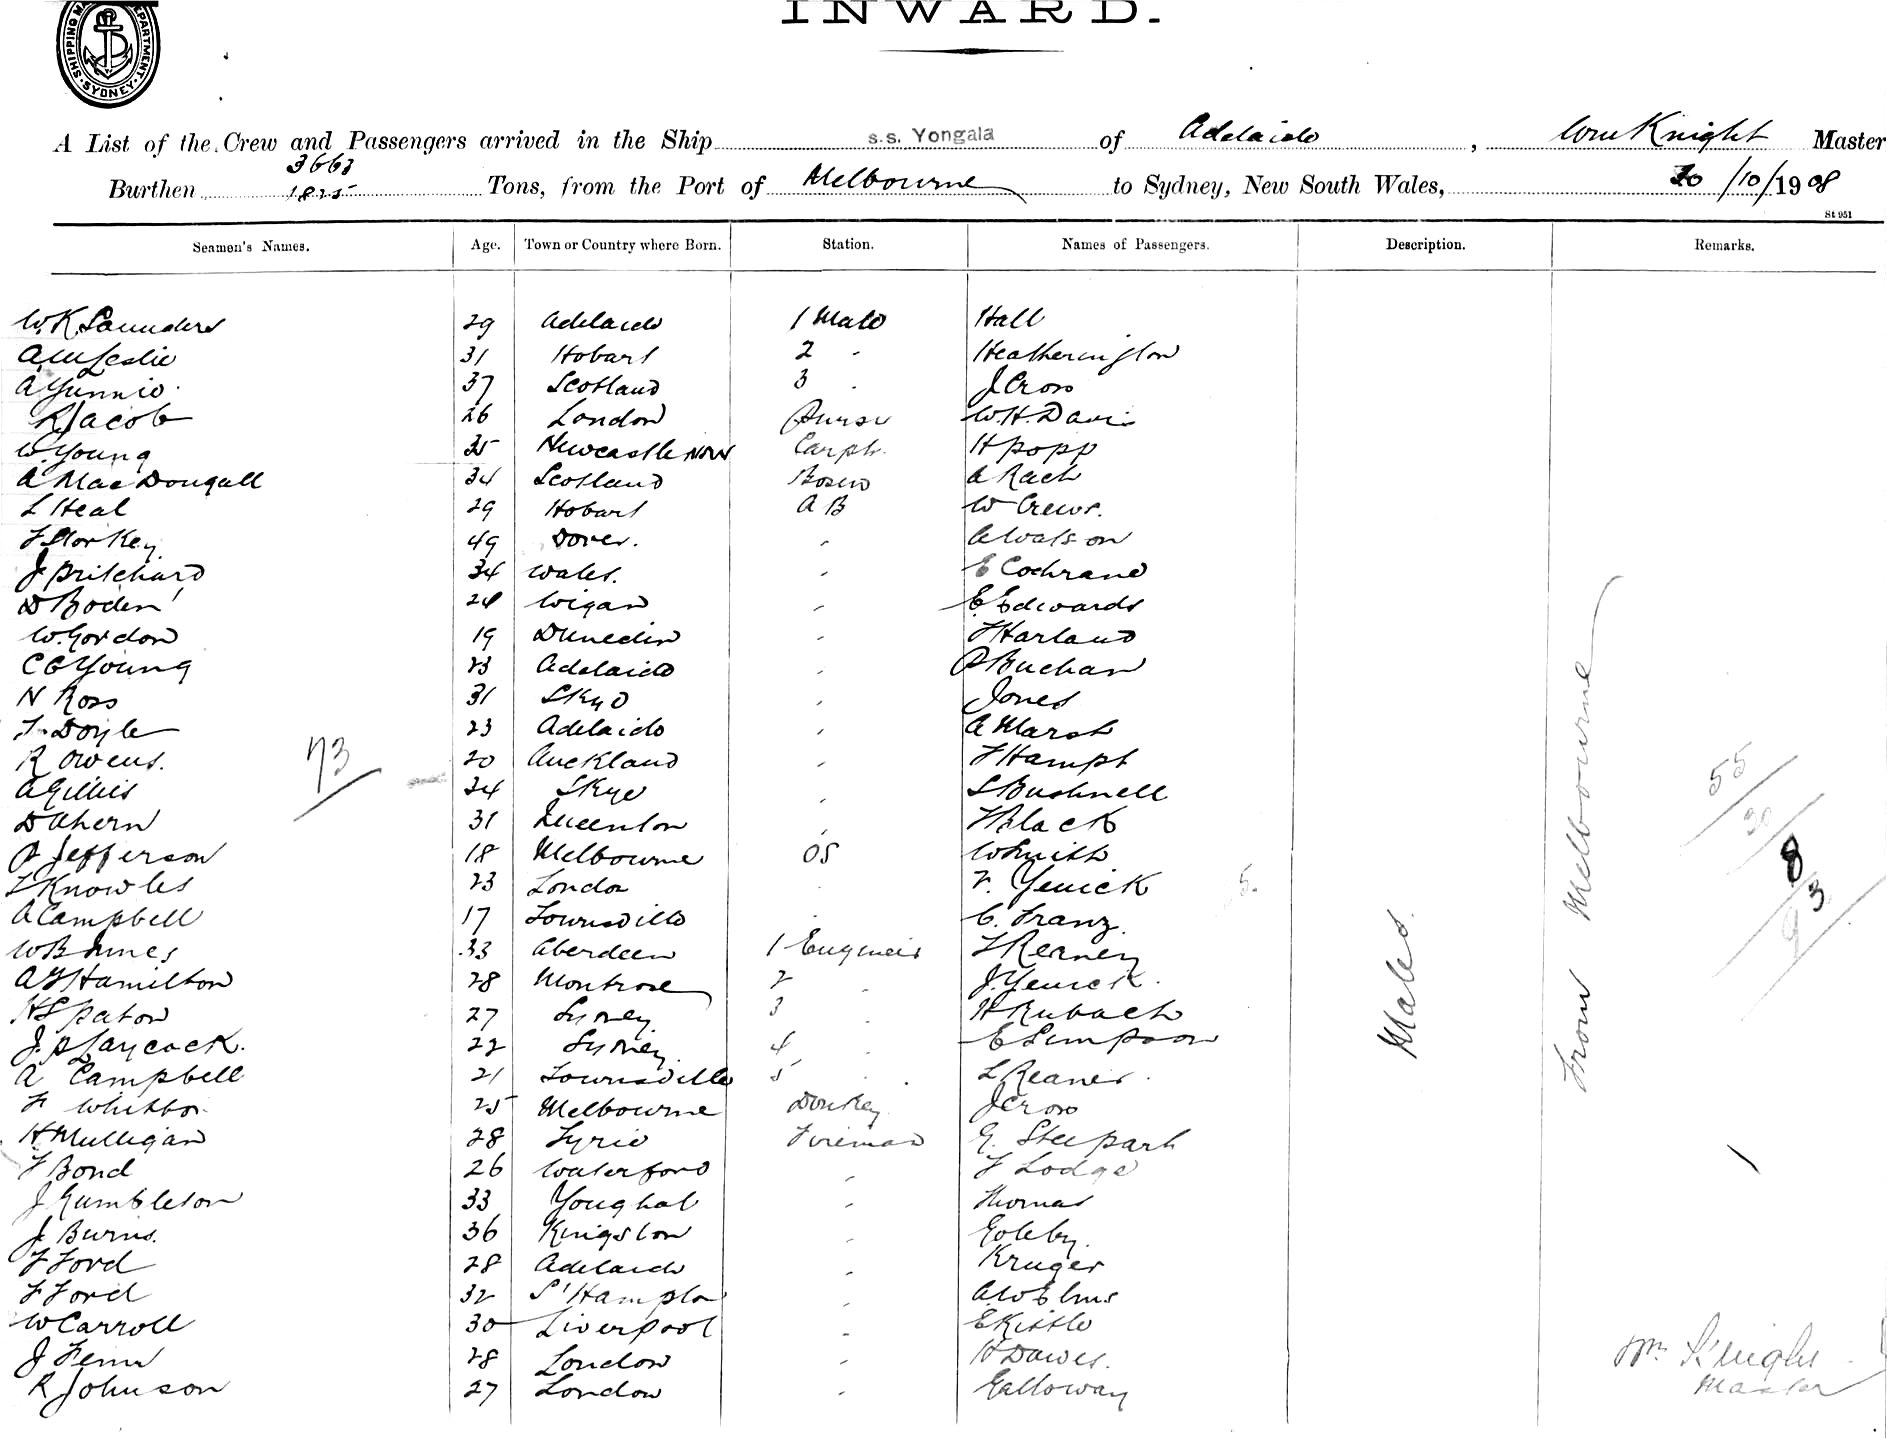 INWARD.
SHIPPING MA DEPARTMENT. SYDNEY
A List of the Crew and Passengers arrived in the Ship s.s. Yongala of Adelaide, Wm Knight Master
3663
Burthen 1825 Tons, from the Port of Melbourne to Sydney, New South Wales, 30/10/1908
St 951
Seamen's Names. Age. Town or Country where Born. Station. Names of Passengers. Description. Remarks.
W.K. Saunders 29 Adelaide 1 Mate Hall
A M Leslie 31 Hobart 2 - Heatherington
A 37 Scotland 3 - J Cross
R Jacob 26 London Purser W.H. Davis
W. Young 35 Newcastle NSW Carptr. H Popp
A MacDougall 34 Scotland Bosun A Rach
L Heal 29 Hobart A B W Crews.
F Storkey 49 Dover. - A Watson
J Pritchard 34 Wales. - E Cochrane
D Boden 24 Wigan - E. Edwards
W. Gordon 19 Dunedin - F Harland
C G Young 23 Adelaide - P Buchan
N Ross 31 Skye - Jones
T. Doyle 23 Adelaide - A Marsh
R Owens. 20 Auckland - F Hampt
A Gillies 34 Skye - S Bushnell
D Ahern 31 Queenton - F Black
P Jefferson 18 Melbourne OS W Smith
L Knowles 23 London F. Yenick
A Campbell 17 Townsville - C. Franz.
W B Innes 33 Aberdeen 1 Engineer F Kearney
A F Hamilton 28 Montrose 2 - J. Yenick.
H S Paton 27 Sydney 3 - H Rubach
J. P Laycock. 22 Sydney. 4 - E Simpson
A Campbell 21 Townsville 5 - L Reaner.
F 25 Melbourne Donkey J Cross
H Mulligan 28 Tyrie Fireman G.
F Bond 26 Waterford - F Lodge
J Rumbleton 33 Youghal - Thomas
J Burns. 36 Kingston - Goleby.
F Ford 28 Adelaide - Kruger
F Ford 32 S'Hampton - A W Elms
W Carroll 30 Liverpool - E Kistle
J Fenn 28 London - H Dawes.
R Johnson 27 London - Galloway
73
Males.
From Melbourne
55
30
8
93
Wm Knight
Master